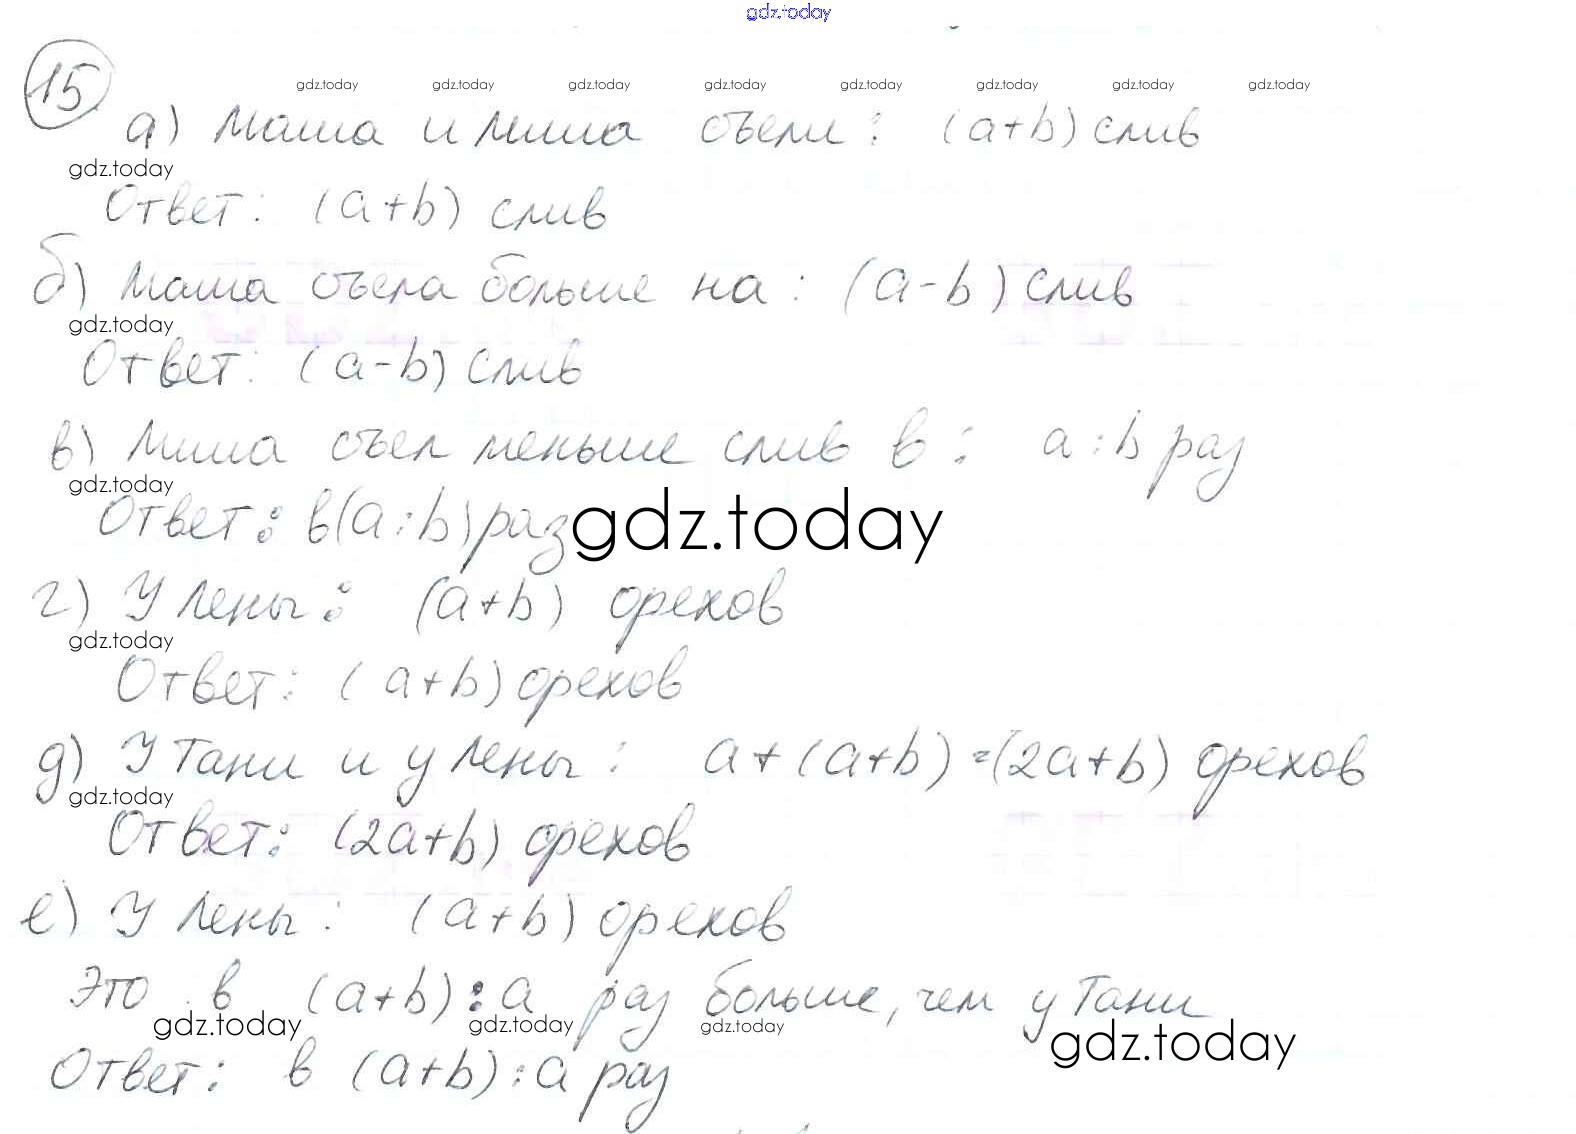 gdz.today
15
gdz.today gdz.today gdz.today gdz.today gdz.today gdz.today gdz.today gdz.today
а) Маша и Миша съели: (a+b) слив
gdz.today
Ответ: (a+b) слив
б) Маша съела больше на: (a-b) слив
gdz.today
Ответ: (a-b) слив
в) Миша съел меньше слив в: a:b раз
gdz.today
Ответ: в(a:b) раз
gdz.today
г) У Лены: (a+b) орехов
gdz.today
Ответ: (a+b) орехов
д) У Тани и у Лены: a+(a+b)=(2a+b) орехов
gdz.today
Ответ: (2a+b) орехов
е) У Лены: (a+b) орехов
Это в (a+b):a раз больше, чем у Тани
gdz.today gdz.today gdz.today gdz.today
Ответ: в (a+b):a раз